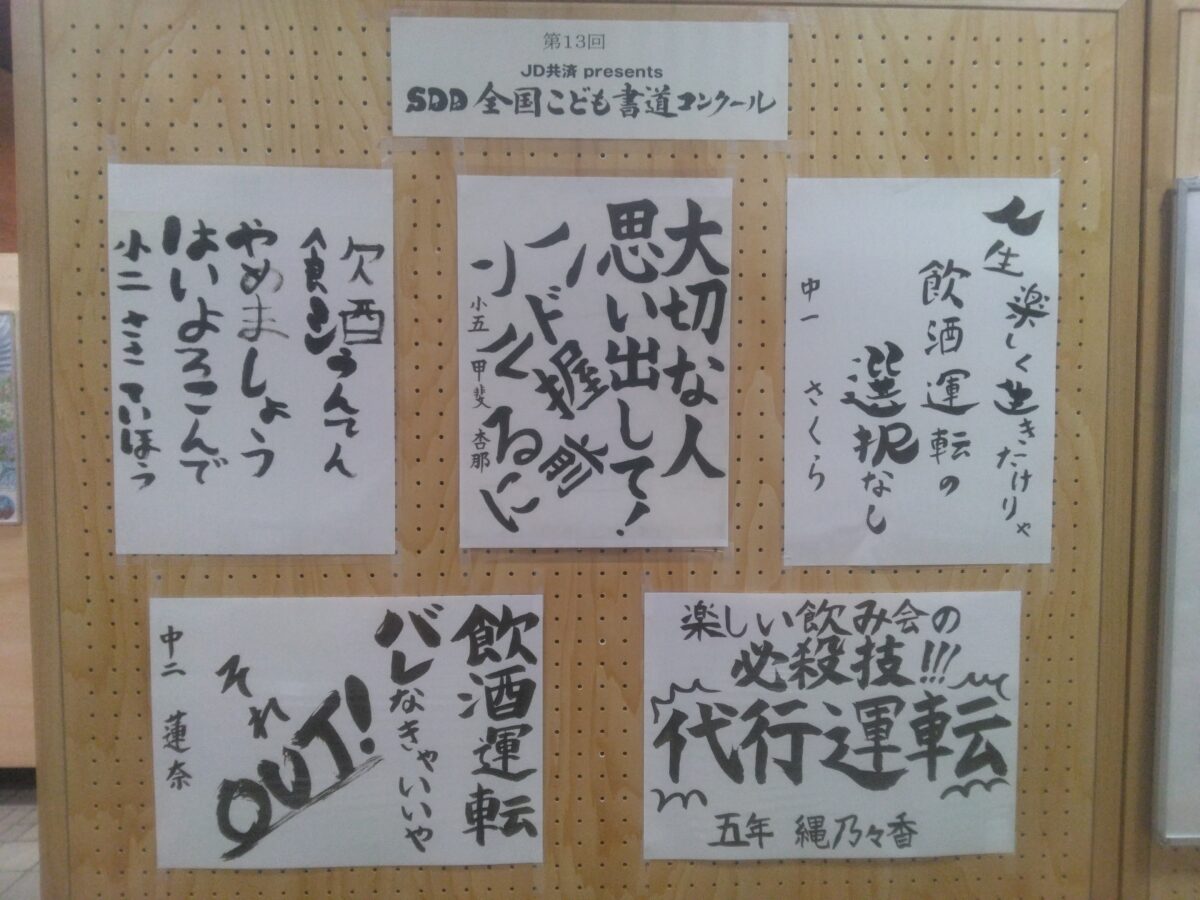 第13回
JD共済 presents
SDD 全国こども書道コンクール
飲酒うんてん
やめましょう
はいよろこんで
小二 ささ ていほう
大切な人
思い出して!
ハンドル握る前に
小五 甲斐 杏那
人生楽しく生きたけりゃ
飲酒運転の
選択なし
中一 さくら
飲酒運転
バレなきゃいいや
それ
OUT!
中二 蓮奈
楽しい飲み会の
必殺技!!!
代行運転
五年 縄乃々香